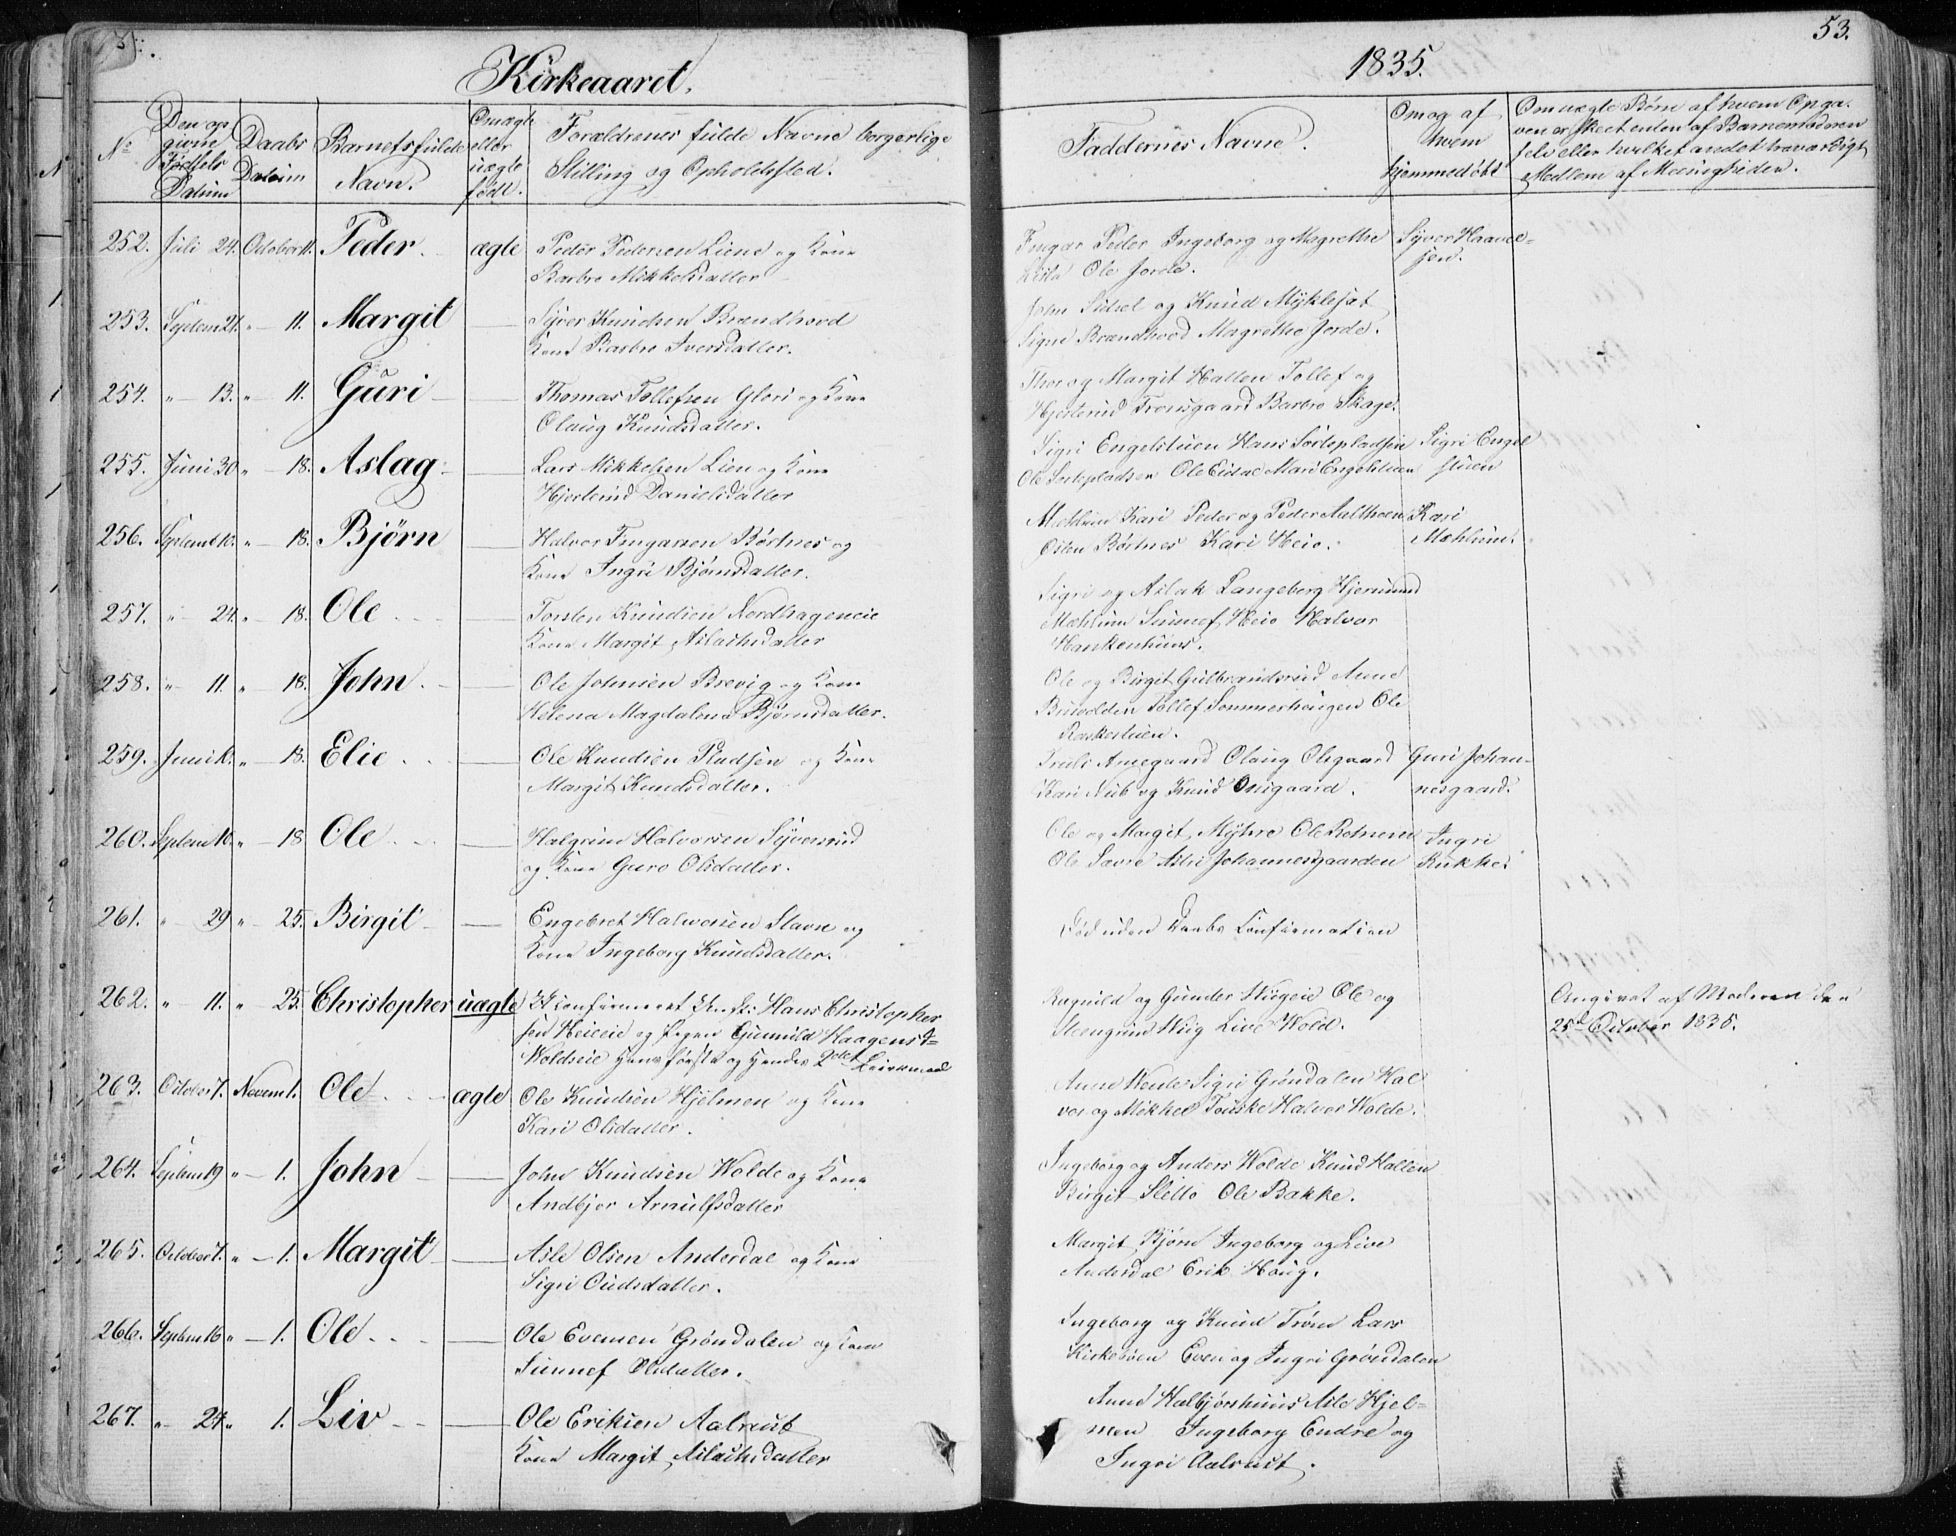 Kirkeaaret.
1835.
53.
No
Den op
givne
Fødsels
Datum
Daabs
Datum
Barnets fulde
Navn.
Om ægte
eller
uægte
født.
Forældrenes fulde Navne borgerlige
Stilling og Opholdssted.
Faddernes Navne.
Om og af
hvem
hjemmedøbt
Om uægte Børn af hvem Opga-
ven er skeet enten af Barnemoderen
selv eller hvilket andet troværdigt
Medlem af Menigheden.
252. Juli 24. October 11. Peder. ægte Peder Pedersen Liene og Kone
Barbro Mikkelsdatter
Ingar Peder Ingeborg og Magrethe
Ole Jorde.
Syver Haavel-
sen.
253. Septem 21. " 11. Margit — Syver Knudsen Brændhovd
Kone Barbro Iversdatter.
John Sidsel og Knud Myklesæt
Signe Brændhovd Magrethe Jorde.
254. " 13. " 11. Guri — Thomas Tollefsen Glori og Kone
Olaug Knudsdatter.
Thor og Margit Hallen Tollef og
Hjertrud Tronsgaard Barbro Skage.
255. Juni 30 " 18. Aslag. — Lars Mikkelsen Lien og Kone
Hjertrud Danielsdatter
Sigri Engelstuen Hans Sortepladsen
Ole Sortepladsen Ole Eidal Mari Engelstuen
Sigri Engel
stuen
256. Septemb 10. " 18. Bjørn — Halvor Ingarsen Børtnes og
Kone Ingri Bjørnsdatter.
Mæhlum Kari Peder og Peder
Osten Børtnes Kari Heie.
Kari
Mæhlum.
257. " 24. " 18. Ole — Torsten Knudsen Nordhageneie
Kone Margit Aslachsdatter
Sigri og Aslak Langeberg Hjermund
Mæhlum Sunnef Heie Halvor
Hankenhuus.
258. " 11. " 18. John. — Ole Johnsen Brevig og Kone
Helena Magdalena Bjørnsdatter.
Ole og Birgit Gulbrandsrud Anne
Tollef Sommerhaugen Ole
Raskestuen.
259. Juni " 18. Elie — Ole Knudsen Pladsen og Kone
Margit Knudsdatter.
Truls Arnegaard Olaug Olsgaard
Kari Nub og Knud Onsgaard.
Guri Johan-
nesgaard.
260. Septem 10. " 18 Ole — Halgrim Halvorsen Syversrud
og Kone Guro Olsdatter.
Ole og Margit Myhre Ole
Ole Sævre Astri Johannesgaarden
Ingri
Rukke.
261. " 29 " 25. Birgit — Engebret Halvorsen Slavne og
Kone Ingeborg Knudsdatter.
Død uden Daabs Confirmation
262. " 11. " 25. Christopher uægte Hans Christopher
sen og Pigen Gunnild Haagensd-
Woldseie hans første og hendes 2det Leiermaal
Ragnild og Gunder Ole og
Wiig Live Wold.
Angivet af Moderen den
25de October 1835.
263. October 7. Novem 1. Ole ægte Ole Knudsen Hjelmen og Kone
Kari Olsdatter.
Anne Sigri Grøndalen Hal
vor og Mikkel Halvor Wolde.
264. Septem 19 " 1. John — John Knudsen Wolde og Kone
Andbjør Arnulfsdatter
Ingeborg og Anders Wolde Knud Hallen
Birgit Sletto Ole Bakke.
265. October 7. " 1. Margit — Asle Olsen Anderdal og Kone
Sigri Oudsdatter.
Margit Bjørn Ingeborg og Live
Anderdal Erik Houg.
266. Septem 16 " 1. Ole — Ole Evensen Grøndalen og Kone
Sunnef Olsdatter.
Ingeborg og Knud Trøm Lars
Kirkebøen Even og Ingri Grøndalen
267. " 24 " 1. Liv — Ole Eriksen Aalrust
Kone Margit Aslachsdatter
Anne Halbjørshuus Asle Hjel-
men Ingeborg Endre og
Ingri Aalrust.